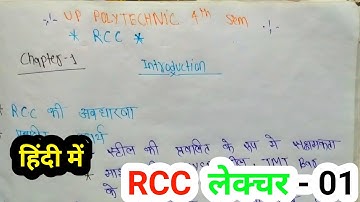 UP POLYTECHNIC 4th Sem
* RCC *
Chapter-1
Introduction
* RCC की अवधारणा
स्टील की प्रबलित के रूप में
TMT Bar
के
हिंदी में
RCC लेक्चर - 01